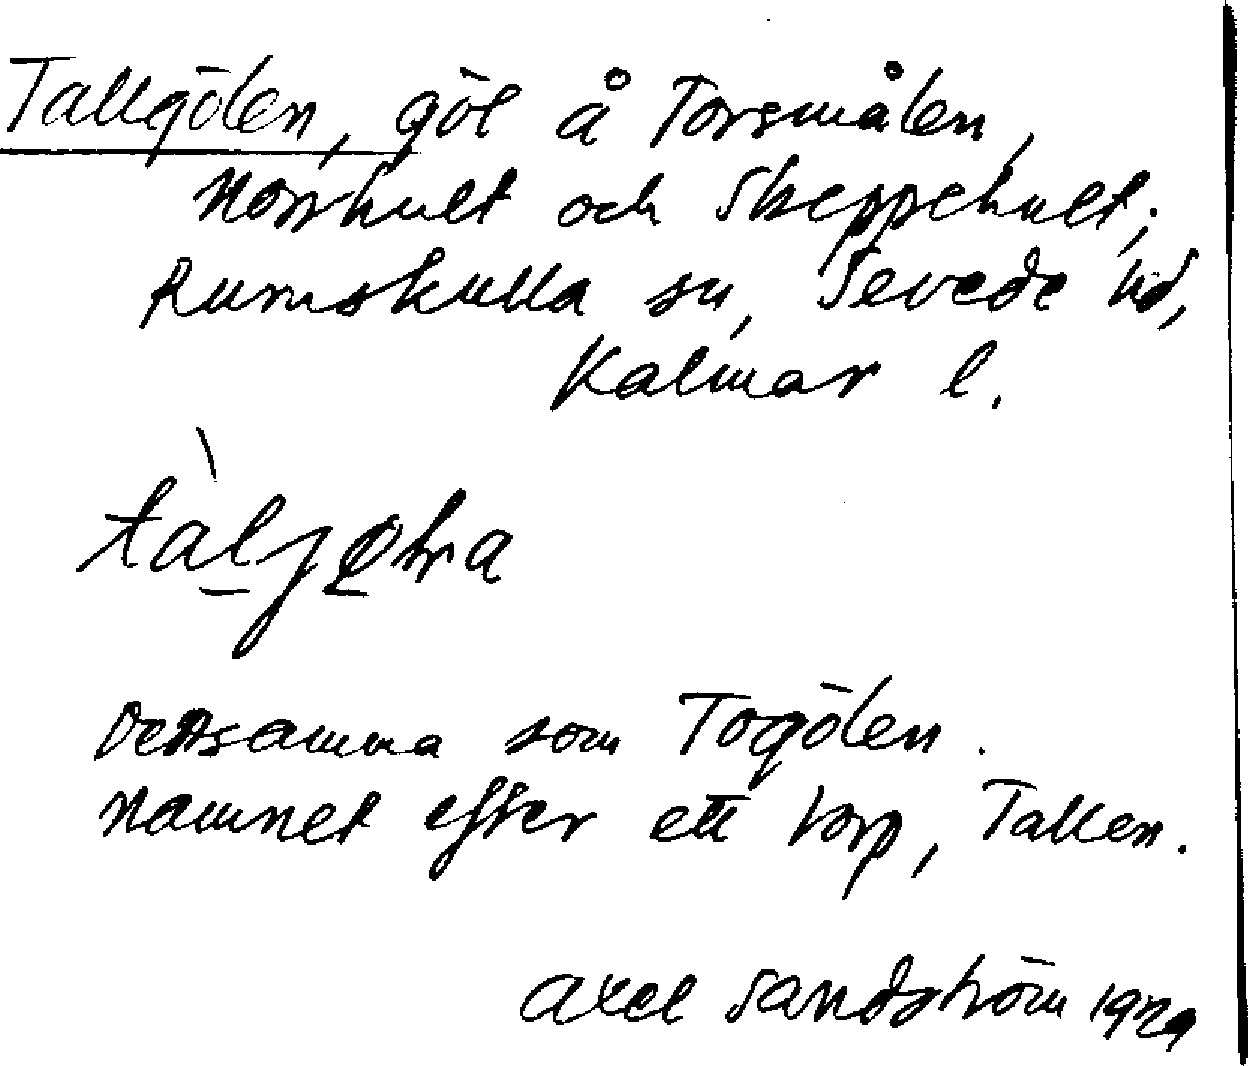 Tallgölen, göl å Torsmålen,
Norrhult och Skeppehult;
Rumskulla sn, Sevede hd,
Kalmar l.
Detsamma som Togölen.
Namnet efter ett torp, Tallen.
Axel Sandström 1929